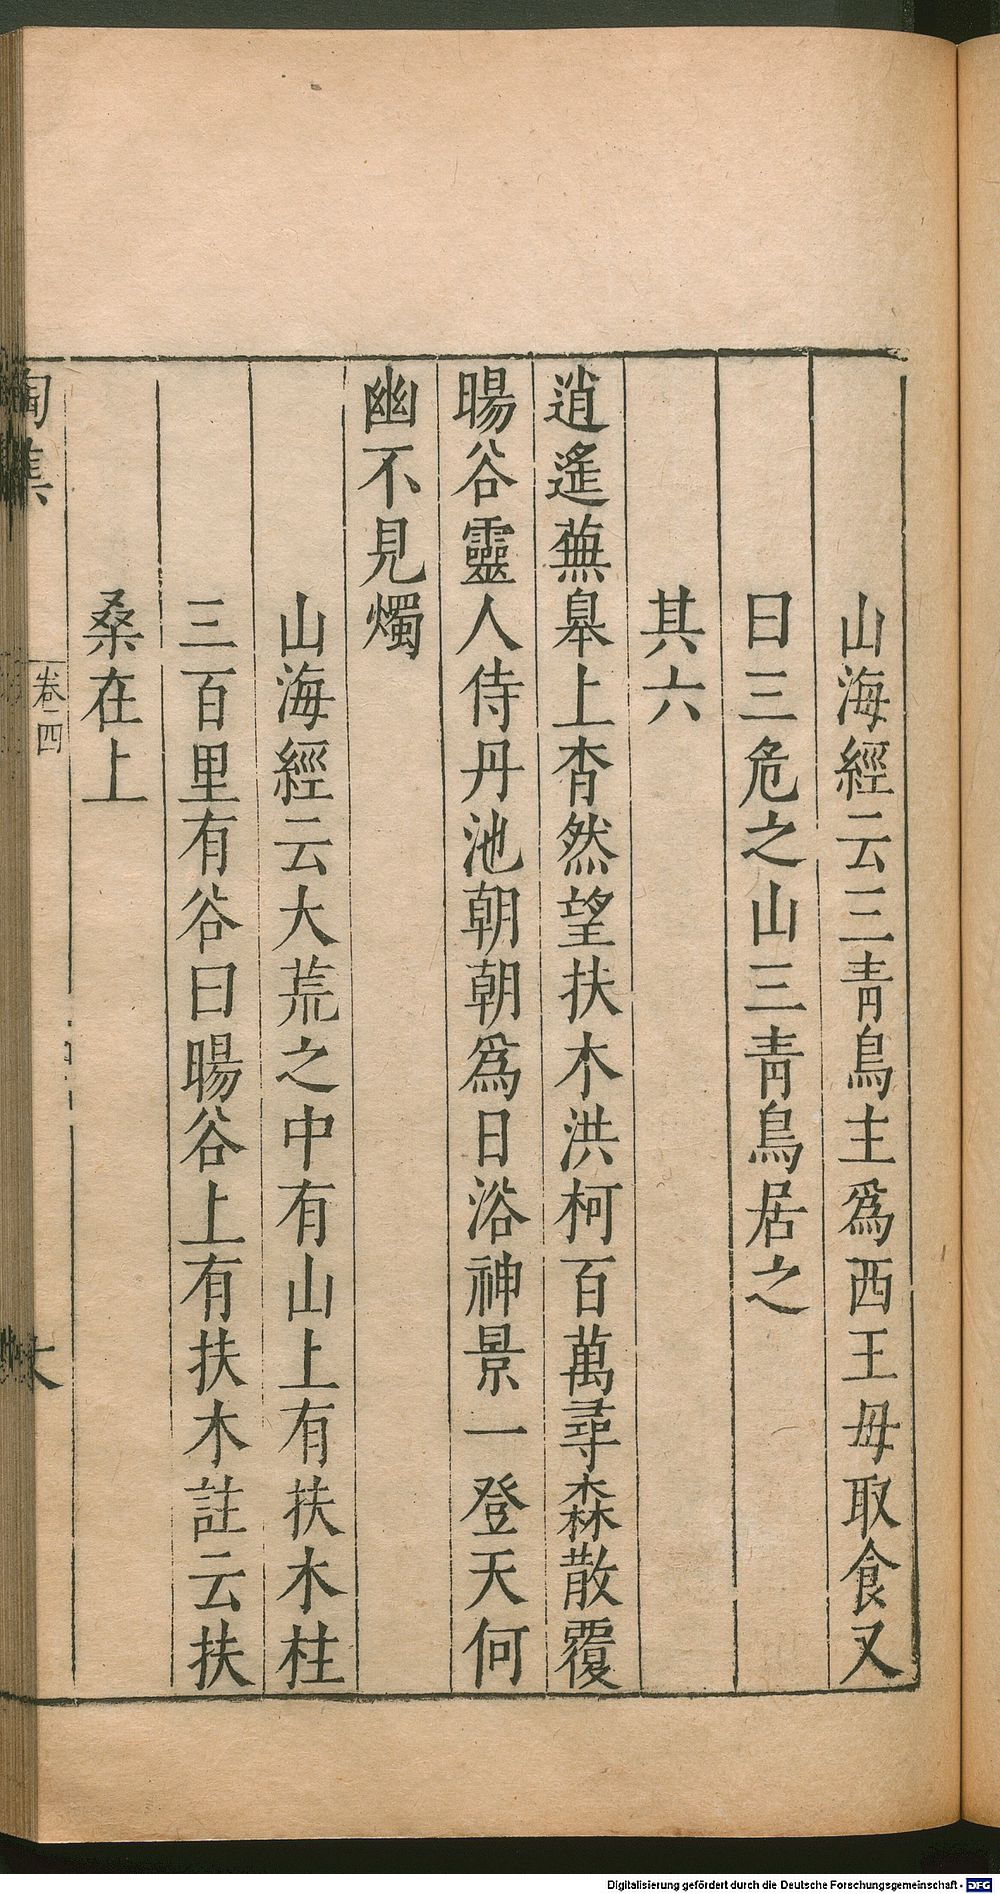 山海經云三青鳥主爲西王母取食又
曰三危之山三青鳥居之
其六
逍遙蕪皋上杳然望扶木洪柯百萬尋森散覆
暘谷靈人侍丹池朝朝爲日浴神景一登天何
幽不見燭
山海經云大荒之中有山上有扶木柱
三百里有谷曰暘谷上有扶木註云扶
桑在上
陶集
卷四
Digitalisierung gefördert durch die Deutsche Forschungsgemeinschaft - DFG